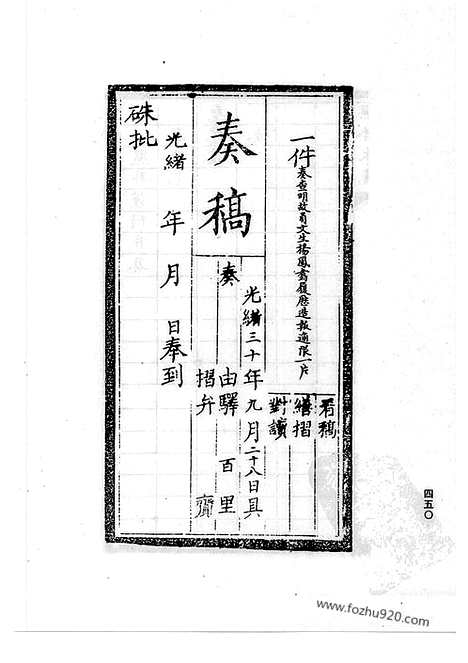 一件奏查明故員文生楊鳳翥履歷造報逾限一片
看稿
繕摺
對讀
奏稿
光緒三十年九月二十八日具
奏 由驛 百里
摺弁 齎
光緒 年 月 日奉到
硃批
四五〇
www.fozhu920.com